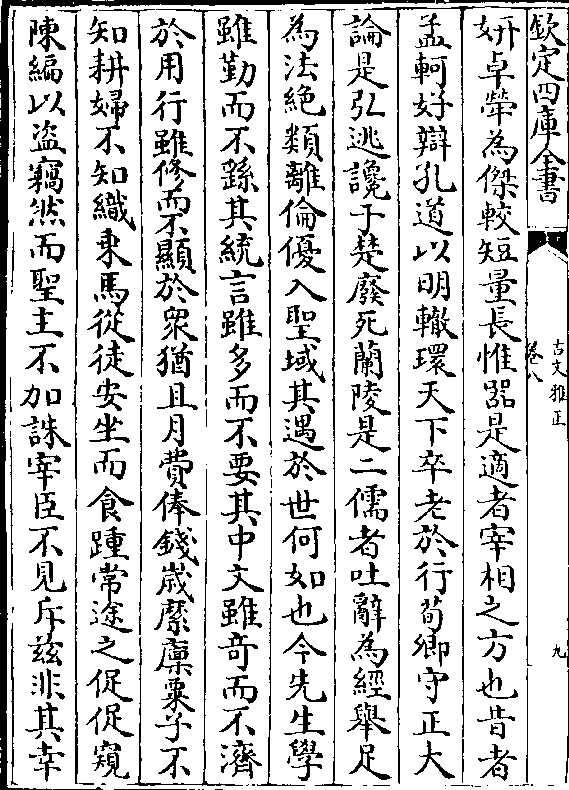 欽定四庫全書
古文雅正
卷八
九
妍卓犖為傑較短量長惟器是適者宰相之方也昔者
孟軻好辯孔道以明轍環天下卒老於行荀卿守正大
論是弘逃讒于楚廢死蘭陵是二儒者吐辭為經舉足
為法絶類離倫優入聖域其遇於世何如也今先生學
雖勤而不繇其統言雖多而不要其中文雖竒而不濟
於用行雖修而不顯於衆猶且月費俸錢歲縻廩粟子不
知耕婦不知織乗馬從徒安坐而食踵常途之促促窺
陳編以盗竊然而聖主不加誅宰臣不見斥兹非其幸